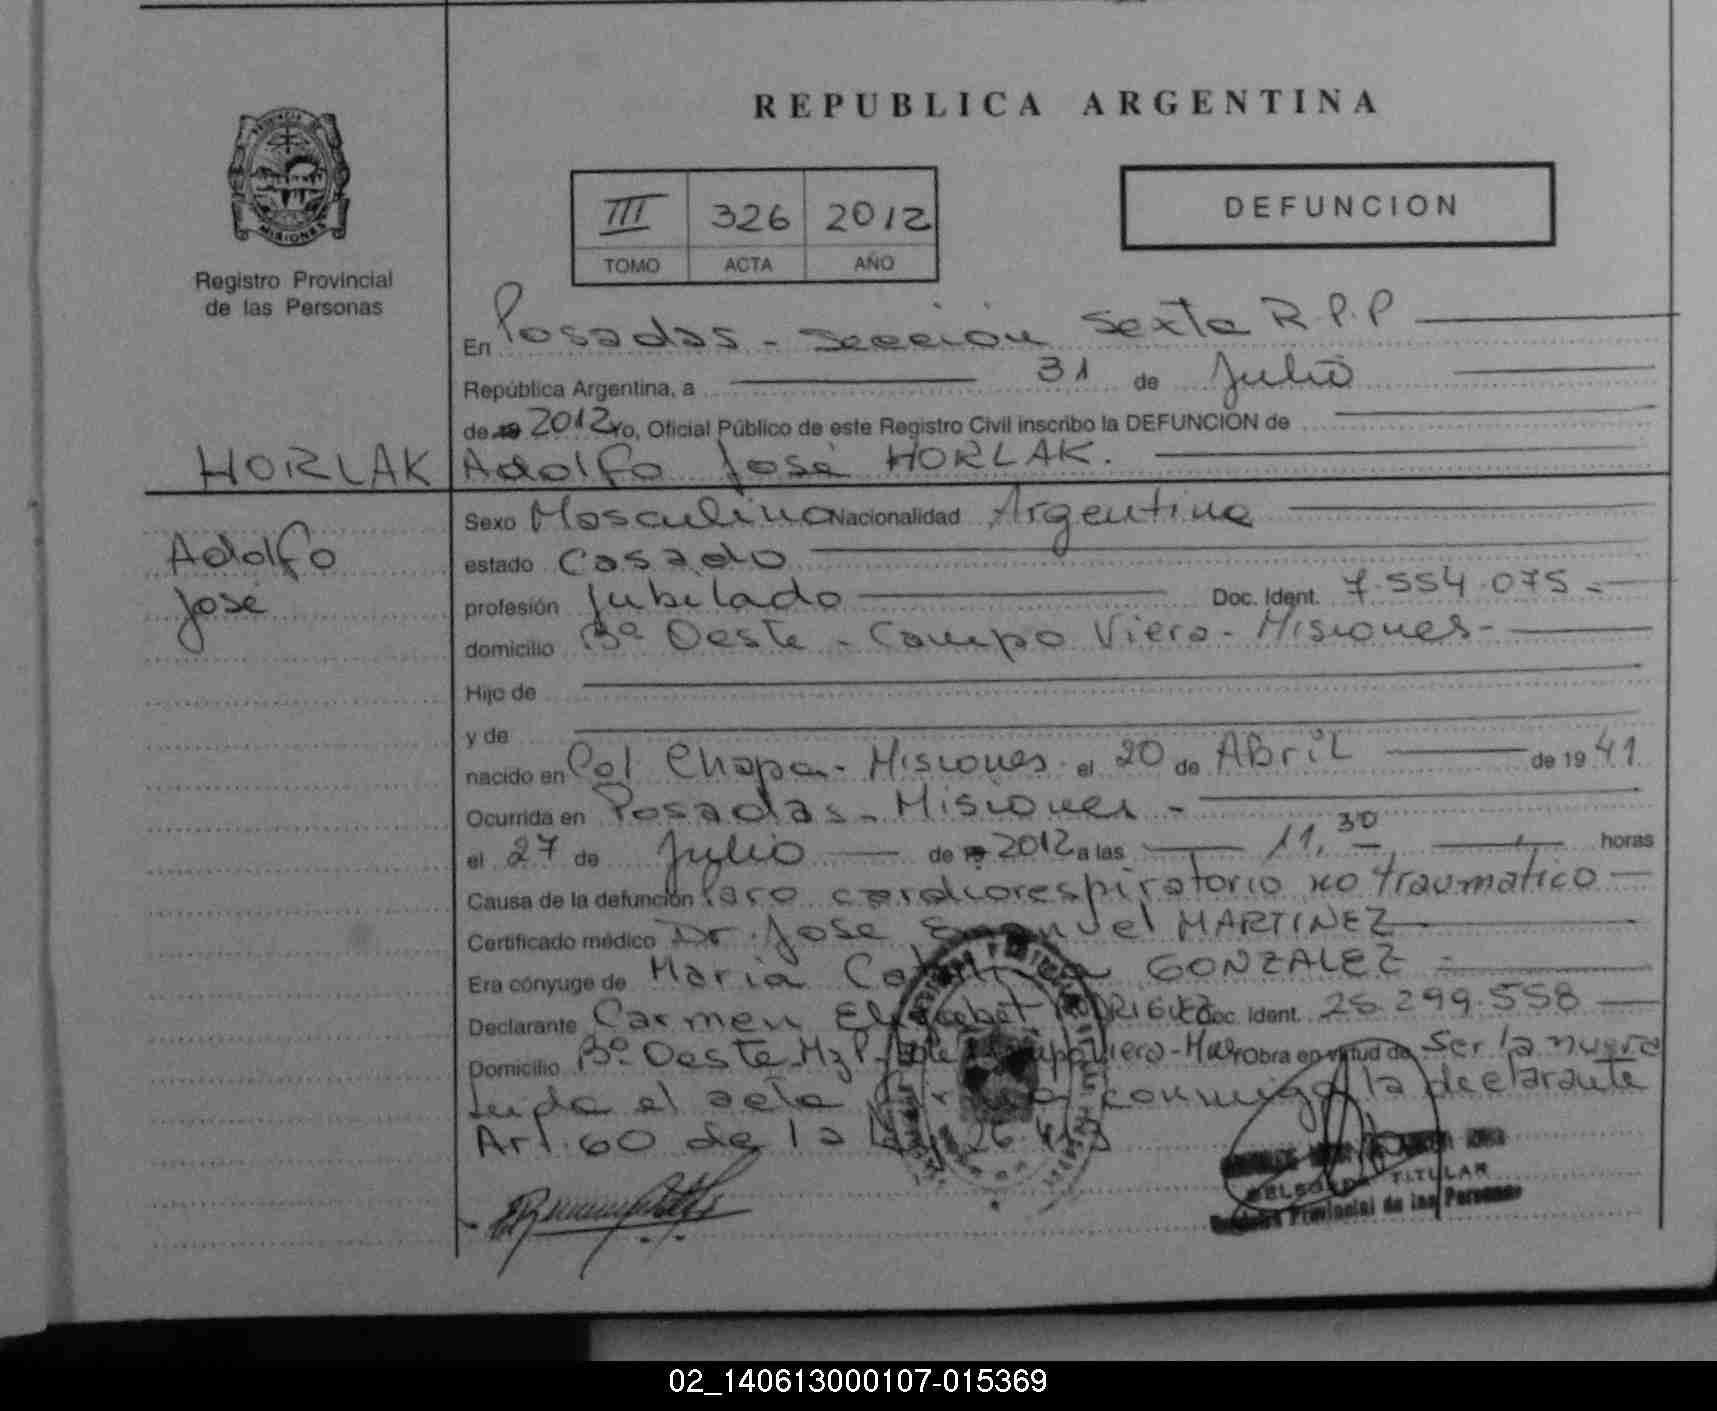 REPUBLICA ARGENTINA
PROVINCIA DE
MISIONES
Registro Provincial
de las Personas
III 326 2012
TOMO ACTA AÑO
DEFUNCION
En Posadas - sección Sexta R.P.P
República Argentina, a 31 de Julio
de 19 2012 Yo, Oficial Público de este Registro Civil inscribo la DEFUNCION de
HORLAK Adolfo José HORLAK.
Adolfo
José
Sexo Masculino Nacionalidad Argentina
estado Casado
profesión Jubilado Doc. Ident. 7.554.075 -
domicilio Bº Oeste - Campo Viera - Misiones -
Hijo de
y de
nacido en Col Chapa - Misiones el 20 de ABriL de 19 41
Ocurrida en Posadas - Misiones -
el 27 de Julio de 19 2012 a las 11,30 horas
Causa de la defunción Paro cardiorespiratorio no traumatico
Certificado médico Dr. Jose Emanuel MARTINEZ
Era cónyuge de Maria GONZALEZ -
Declarante Carmen Elizabet RODRIGUEZ Doc. Ident. 25.299.558
Domicilio Bº Oeste Mz P. Campo Viera - Mnes Obra en virtud de Ser la nuera
Leida el acta conmigo la declarante
Art. 60 de la Ley 26.413
DELEGADA TITULAR
Registro Provincial de las Personas
02_140613000107-015369